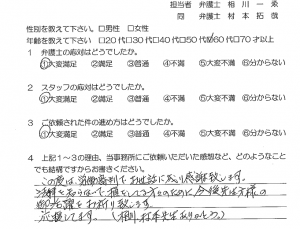 担当者 弁護士 相川一柰
同 弁護士 村本拓哉
性別を教えて下さい。 □男性 □女性
年齢を教えて下さい □20代□30代□40代□50代□60代□70才以上
1 弁護士の応対はどうでしたか。
①大変満足 ②満足 ③普通 ④不満 ⑤大変不満 ⑥分からない
2 スタッフの応対はどうでしたか。
①大変満足 ②満足 ③普通 ④不満 ⑤大変不満 ⑥分からない
3 ご依頼された件の進め方はどうでしたか。
①大変満足 ②満足 ③普通 ④不満 ⑤大変不満 ⑥分からない
4 上記1~3の理由、当事務所にご依頼いただいた感想など、どのようなこと
でも結構ですからお書きください。
この度は、労働審判でお世話になり感謝致します。
今後先生方の
御活躍をお祈り致します。
応援してます。(相川、村本先生ありがとう。)